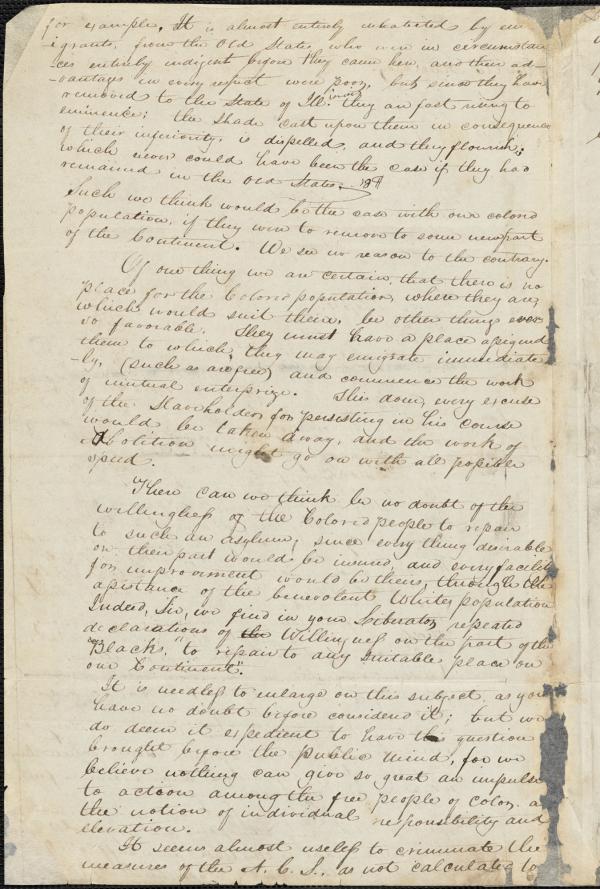 for example, It is almost entirely inhabited by em
-igrants, from the Old States who were in circumstan
ces entirely indigent before they came here, and their ad-
-vantages in every respect were poor, but since they have
removed to the State of Ill. they are fast rising to
eminence; the shade cast upon them in consequence
of their inferiority, is dispelled, and they flourish;
which never could have been the case if they had
remained in the Old States.
Such we think would be the case with our colored
population, if they were to remove to some new part
of the Continent. We see no reason to the contrary.
Of one thing we are certain, that there is no
place for the Colored population, where they are,
which would suit them, be other things ever
so favorable. They must have a place assigned
them to which, they may emigrate immediate
-ly, (such as are free) and commence the work
of mutual enterprize. This done, every excuse
of the Slaveholder, for persisting in his course
would be taken away, and the work of
Abolition might go on with all possible
speed.
There can we think be no doubt of the
willingness of the Colored people to repair
to such an Asylum, since every thing desirable
on their part would be insured, and every facility
for improvement would be theirs, through the
assistance of the benevolent White population
Indeed, Sir, we find in your Liberator, repeated
declarations of the Willingness on the part of the
Blacks, "to repair to any suitable place on
our Continent".
It is needless to enlarge on this subject, as you
have no doubt before considered it; but we
do deem it expedient to have the question
brought before the public mind, for we
believe nothing can give so great an impulse
to action among the free people of color, as
the notion of individual responsibility and
elevation.
It seems almost useless to criminate the
measures of the A. C. S., as not calculated to